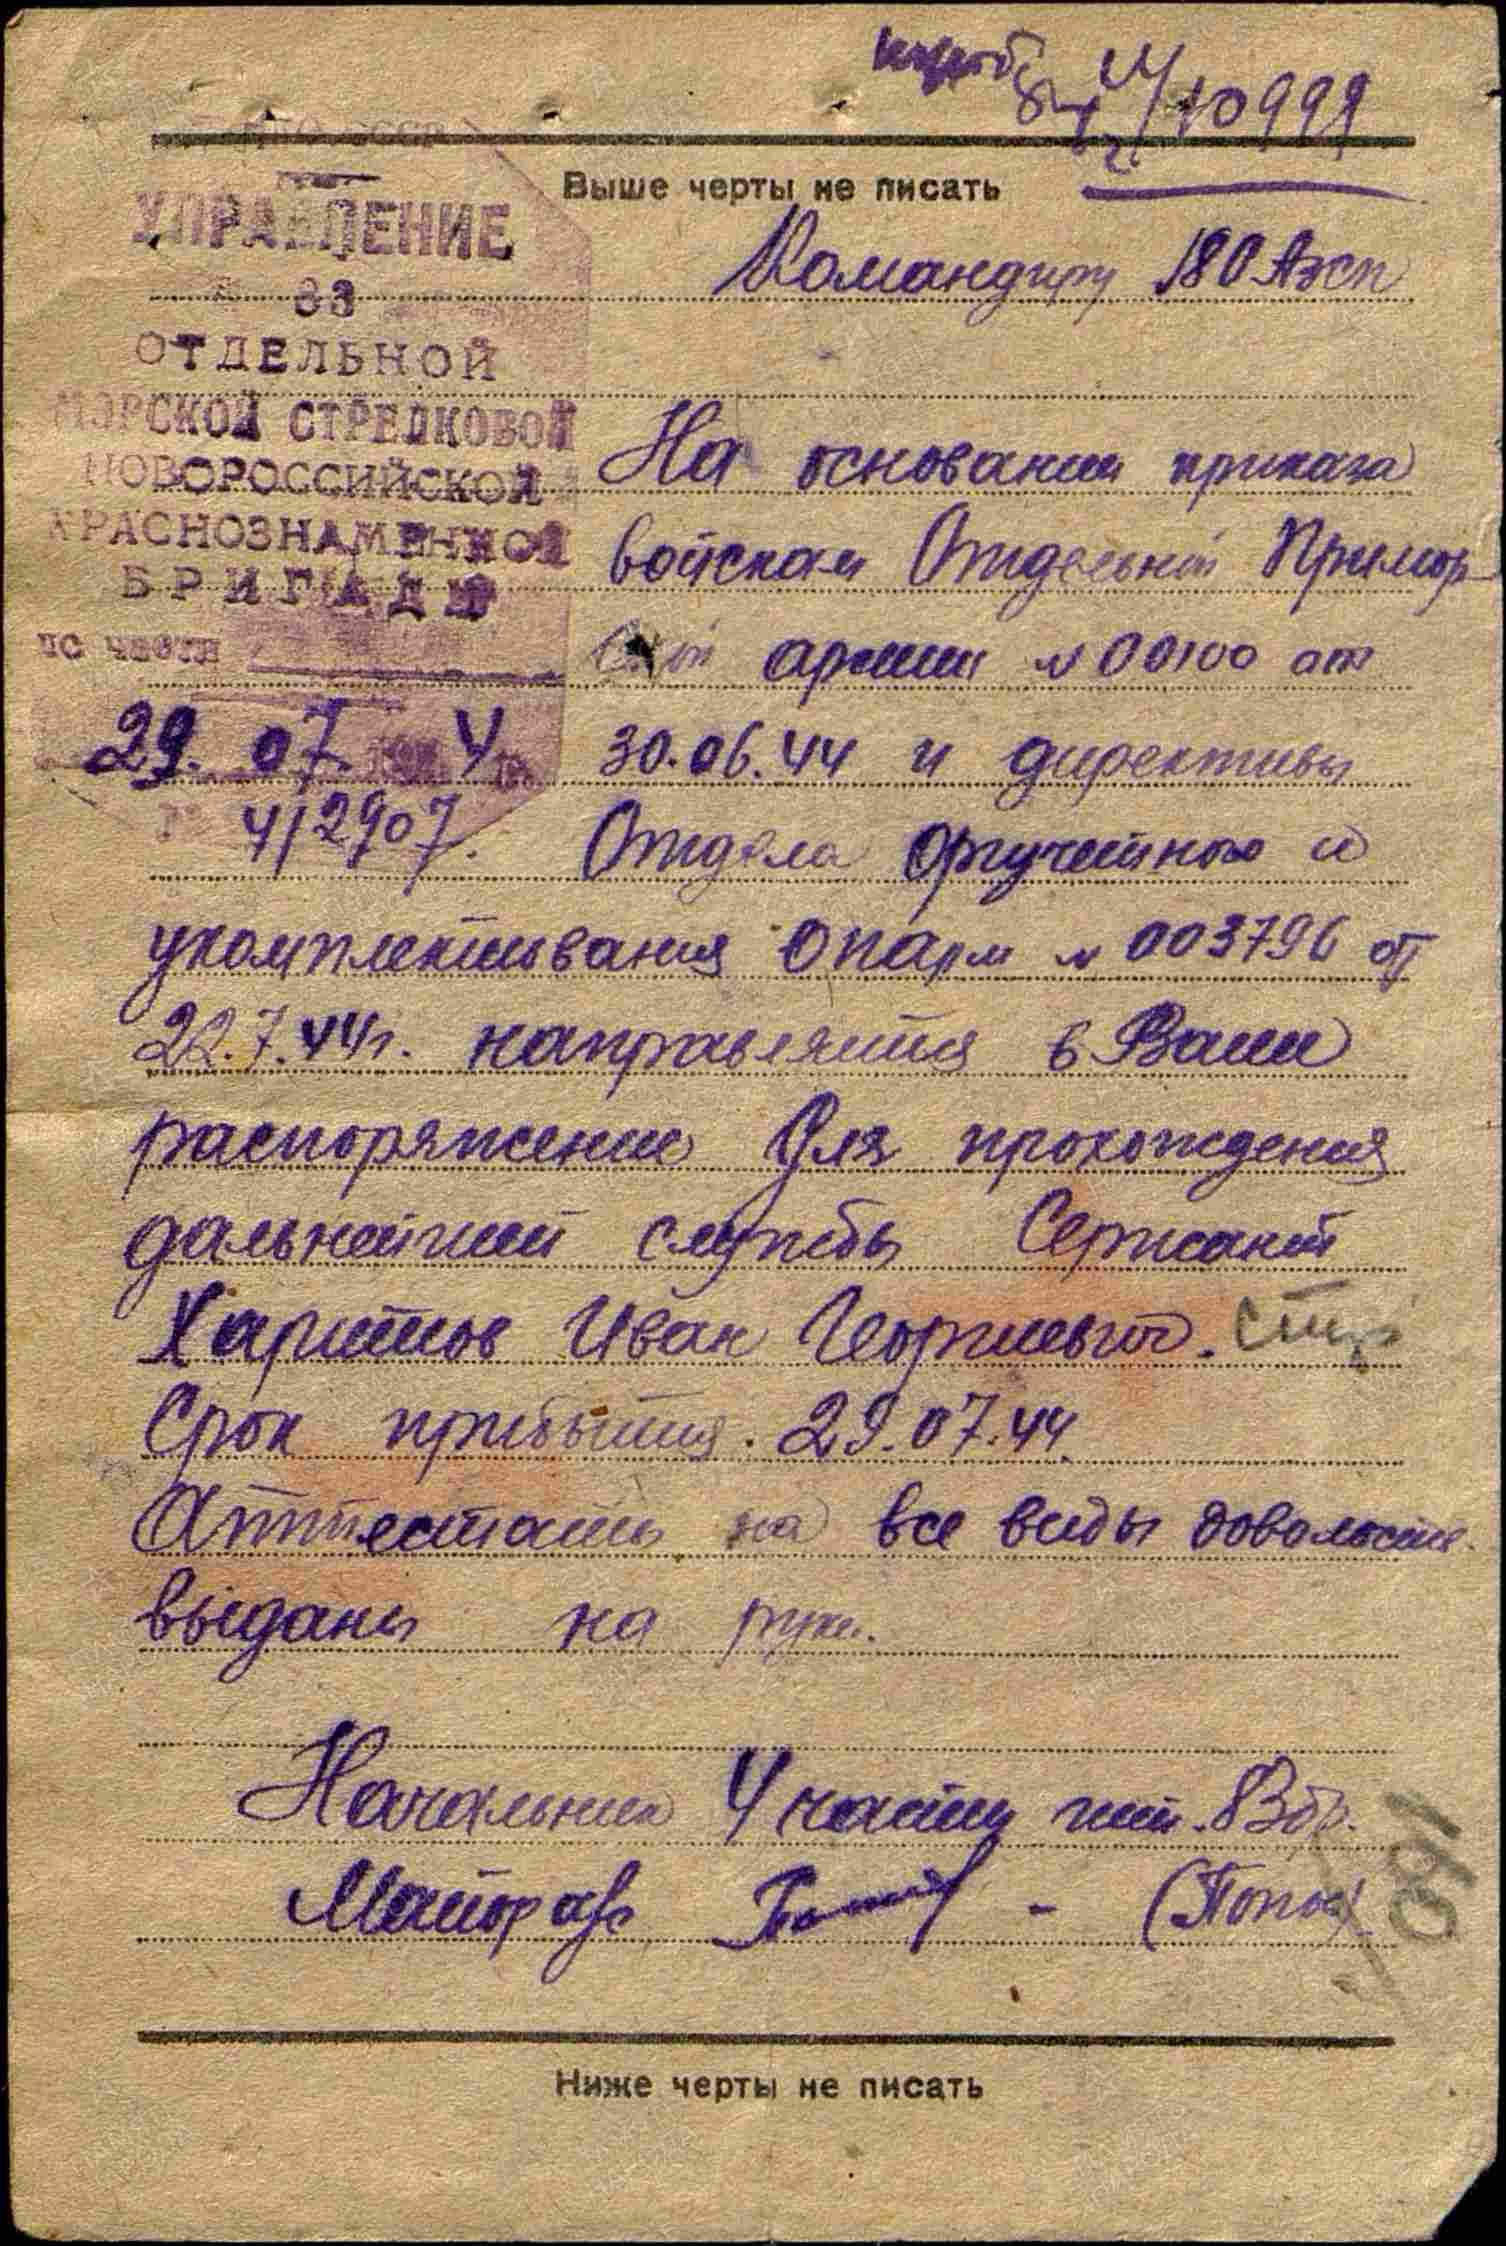 10999
Выше черты не писать
УПРАВЛЕНИЕ
83
ОТДЕЛЬНОЙ
МОРСКОЙ СТРЕЛКОВОЙ
НОВОРОССИЙСКОЙ
КРАСНОЗНАМЕННОЙ
БРИГАДЫ
по части
29. 07. 4 г.
4/2907.
Командиру 180 Азсп
На основании приказа
войскам Отдельной Примор-
ской армии №00100 от
30.06.44 и директивы
Отдела Оргучетного и
укомплектования Опарм №003796 от
22.7.44г. направляется в Ваше
распоряжение для прохождения
дальнейшей службы Сержант
Харитов Иван Георгиевич.
Срок прибытия. 29.07.44.
Аттестаты на все виды довольствие
выданы на руки.
Начальник 4 части 83бр.
Майор а/с - (Попов)
180
Ниже черты не писать